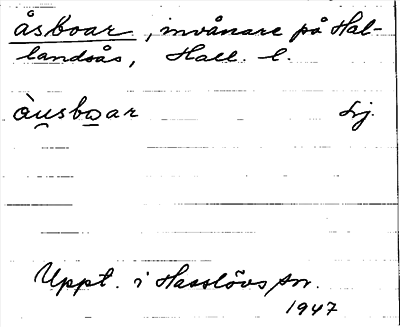 åsboar, invånare på Hal-
landsås, Hall. l.
àusboar Lrj.
Uppt. i Hasslövs sn.
1947